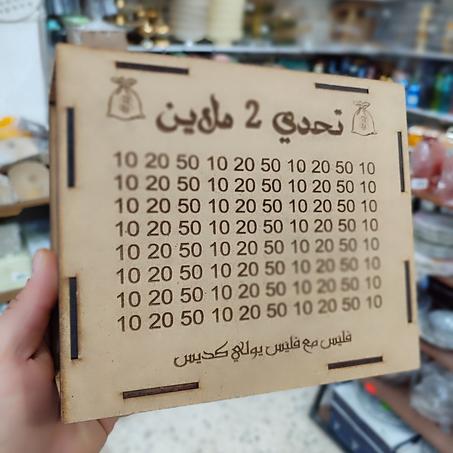 تحدي 2 ملاين
10 20 50 10 20 50 10 20 50 10
10 20 50 10 20 50 10 20 50 10
10 20 50 10 20 50 10 20 50 10
10 20 50 10 20 50 10 20 50 10
10 20 50 10 20 50 10 20 50 10
10 20 50 10 20 50 10 20 50 10
10 20 50 10 20 50 10 20 50 10
10 20 50 10 20 50 10 20 50 10
فليس مع فليس يولي كديس